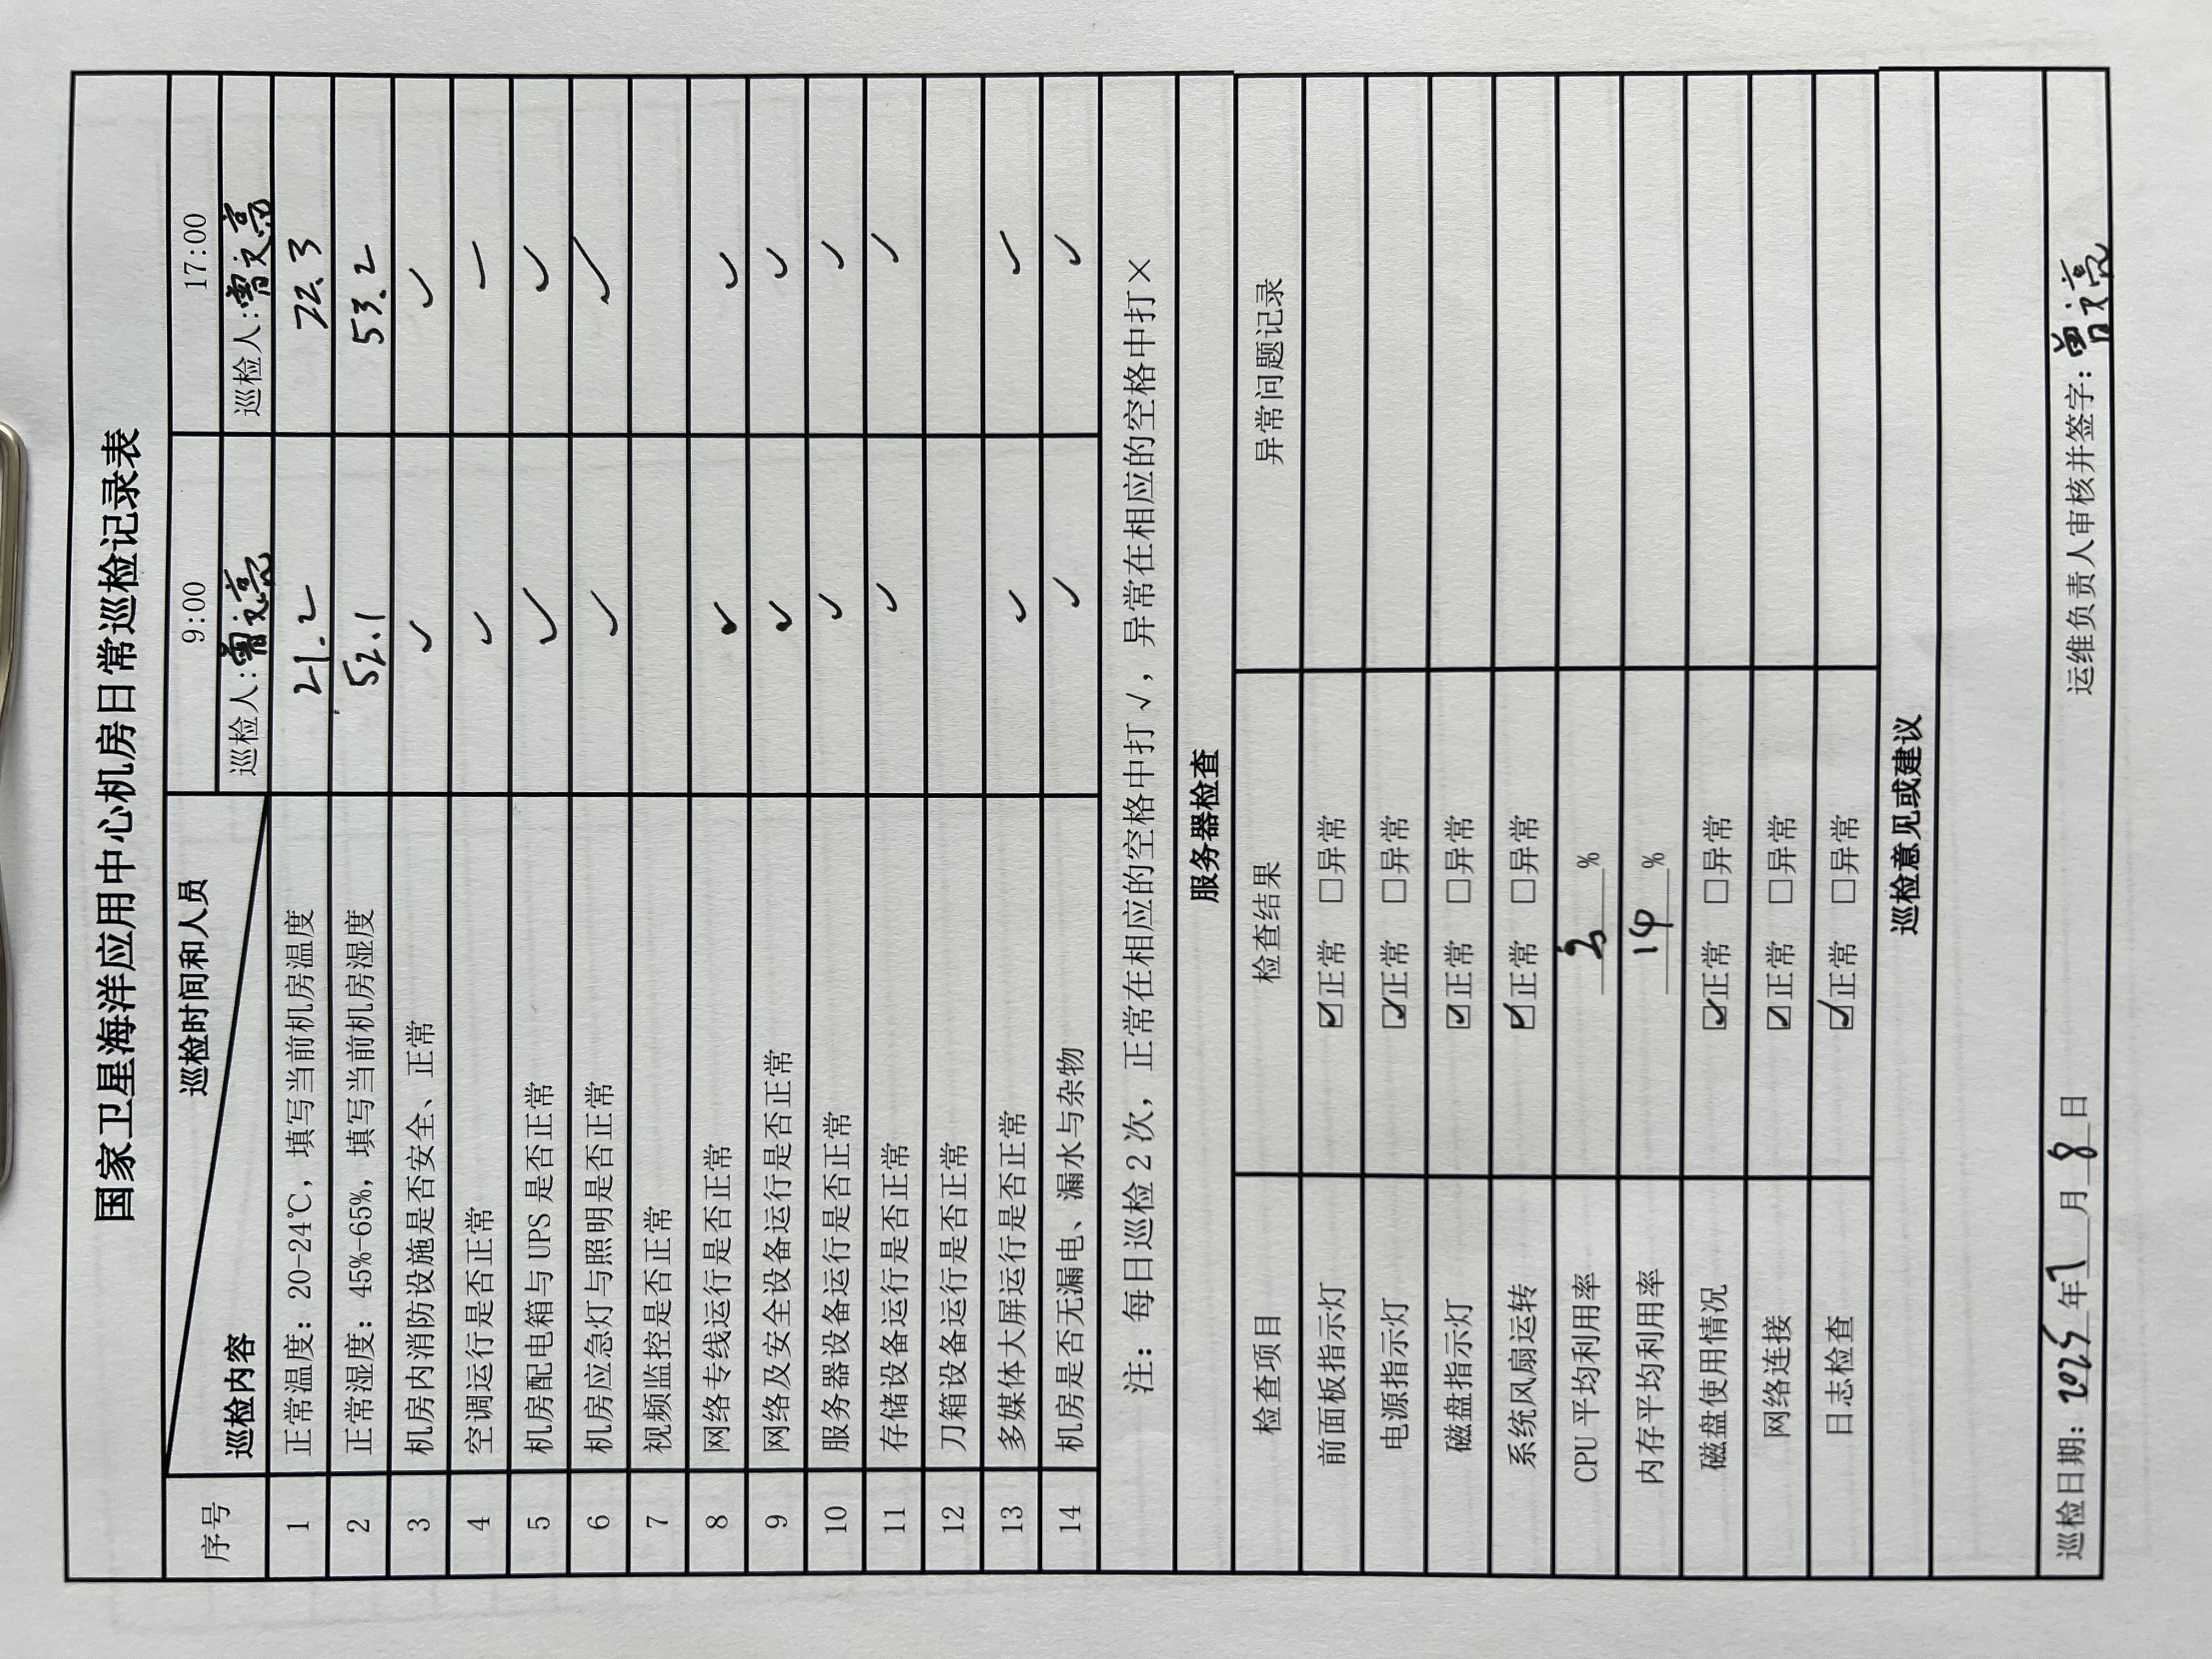 国家卫星海洋应用中心机房日常巡检记录表
序号 巡检内容 巡检时间和人员 9:00 17:00
巡检人:曾文亮 巡检人:曾文亮
1 正常温度: 20-24℃, 填写当前机房温度 21.2 22.3
2 正常湿度: 45%-65%, 填写当前机房湿度 52.1 53.2
3 机房内消防设施是否安全、正常 ✓ ✓
4 空调运行是否正常 ✓ ✓
5 机房配电箱与 UPS 是否正常 ✓ ✓
6 机房应急灯与照明是否正常 ✓ ✓
7 视频监控是否正常
8 网络专线运行是否正常 ✓ ✓
9 网络及安全设备运行是否正常 ✓ ✓
10 服务器设备运行是否正常 ✓ ✓
11 存储设备运行是否正常 ✓ ✓
12 刀箱设备运行是否正常
13 多媒体大屏运行是否正常 ✓ ✓
14 机房是否无漏电、漏水与杂物 ✓ ✓
注: 每日巡检 2 次, 正常在相应的空格中打 √, 异常在相应的空格中打×
服务器检查
检查项目 检查结果 异常问题记录
前面板指示灯 ☑正常 □异常
电源指示灯 ☑正常 □异常
磁盘指示灯 ☑正常 □异常
系统风扇运转 ☑正常 □异常
CPU 平均利用率 %
内存平均利用率 14 %
磁盘使用情况 ☑正常 □异常
网络连接 ☑正常 □异常
日志检查 ☑正常 □异常
巡检意见或建议
巡检日期: 2025 年 7 月 8 日 运维负责人审核并签字: 曾文亮